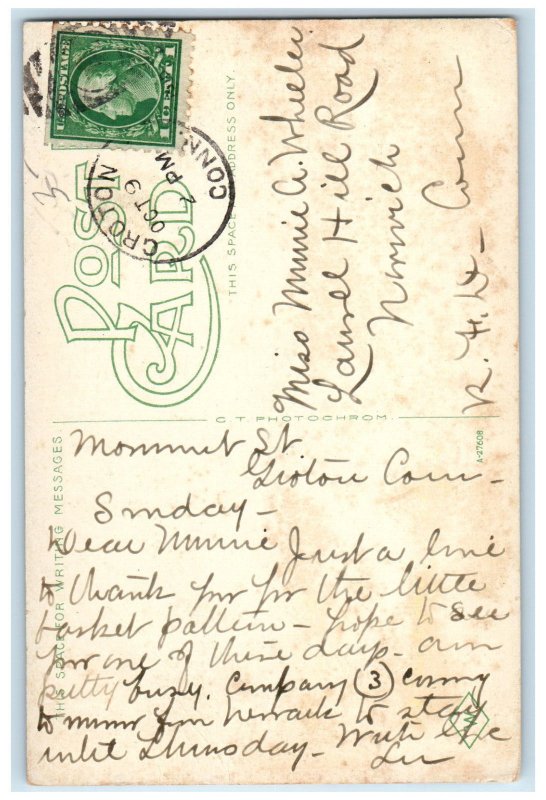 U.S. POSTAGE
1 CENT 1
GROTON CONN.
OCT 9
2 PM
POST CARD
THIS SPACE FOR ADDRESS ONLY.
Miss Minnie A. Wheeler
Laurel Hill Road
Norwich
R. F. D. - Conn
C.T. PHOTOCHROM
A-27608
THIS SPACE FOR WRITING MESSAGES
Monument St
Groton Conn -
Sunday -
Dear Minnie Just a line
to thank you for the little
basket pattern - hope to see
you one of these days - am
pretty busy. Company (3) coming
to from to stay
until Thursday - With love
Lu